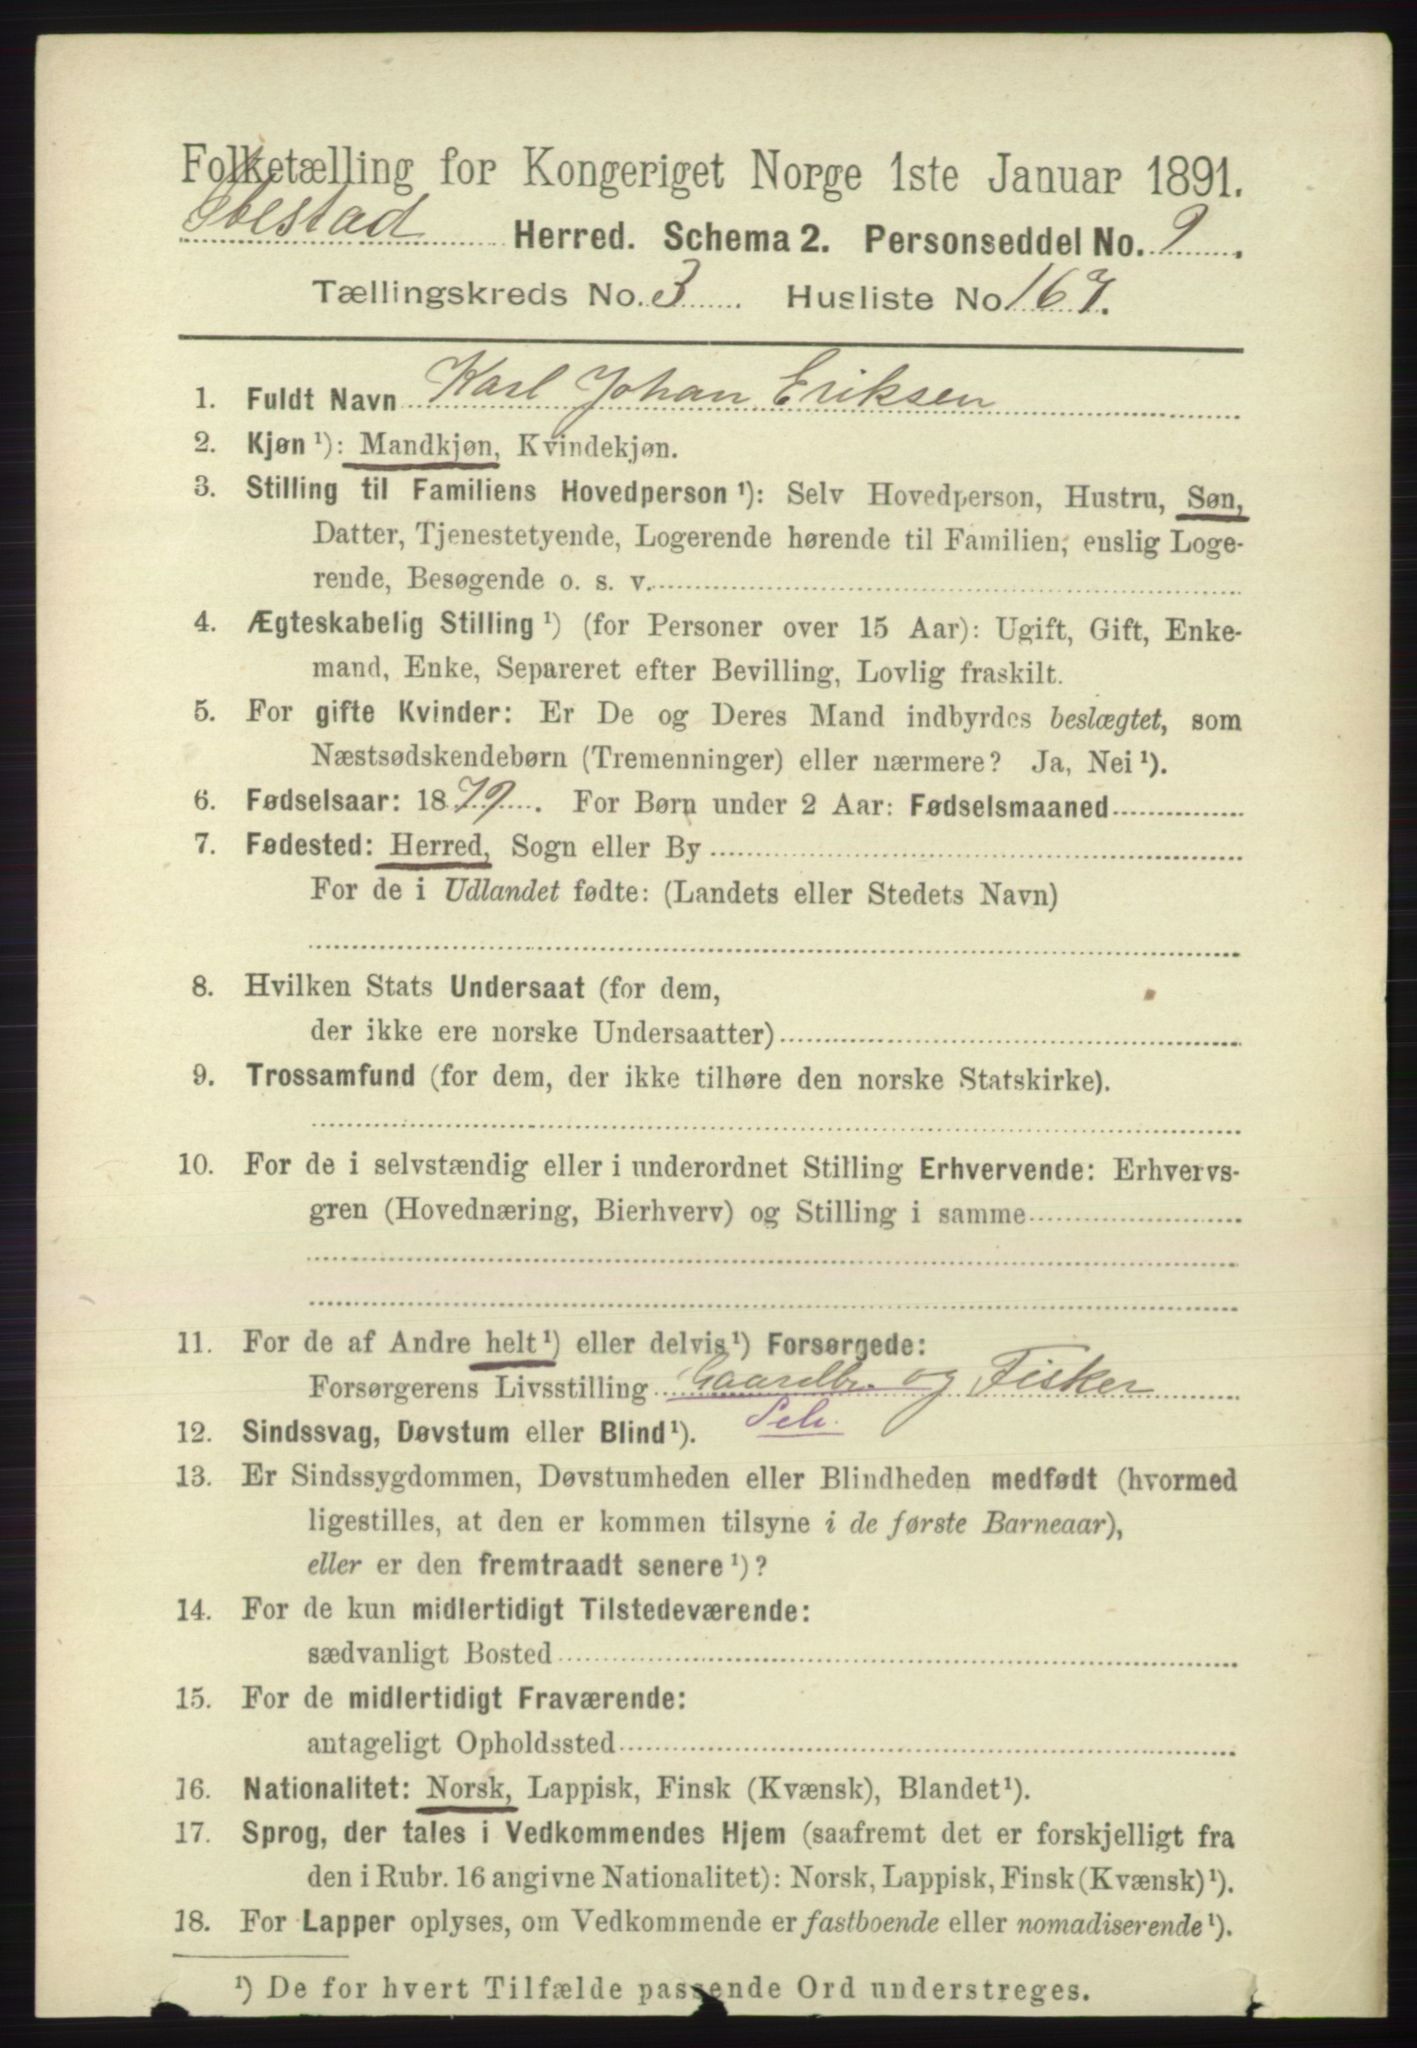 Folketælling for Kongeriget Norge 1ste Januar 1891.
Ibestad Herred. Schema 2. Personseddel No. 9.
Tællingskreds No. 3. Husliste No 167.
1. Fuldt Navn Karl Johan Eriksen
2. Kjøn ¹): Mandkjøn, Kvindekjøn.
3. Stilling til Familiens Hovedperson ¹): Selv Hovedperson, Hustru, Søn,
Datter, Tjenestetyende, Logerende hørende til Familien, enslig Loge-
rende, Besøgende o. s. v.
4. Ægteskabelig Stilling ¹) (for Personer over 15 Aar): Ugift, Gift, Enke-
mand, Enke, Separeret efter Bevilling, Lovlig fraskilt.
5. For gifte Kvinder: Er De og Deres Mand indbyrdes beslægtet, som
Næstsødskendebørn (Tremenninger) eller nærmere? Ja, Nei ¹).
6. Fødselsaar: 1879. For Børn under 2 Aar: Fødselsmaaned
7. Fødested: Herred, Sogn eller By
For de i Udlandet fødte: (Landets eller Stedets Navn)
8. Hvilken Stats Undersaat (for dem,
der ikke ere norske Undersaatter)
9. Trossamfund (for dem, der ikke tilhøre den norske Statskirke).
10. For de i selvstændig eller i underordnet Stilling Erhvervende: Erhvervs-
gren (Hovednæring, Bierhverv) og Stilling i samme
11. For de af Andre helt ¹) eller delvis ¹) Forsørgede:
Forsørgerens Livsstilling Gaardbr. og Fisker
12. Sindssvag, Døvstum eller Blind ¹). Selv.
13. Er Sindssygdommen, Døvstumheden eller Blindheden medfødt (hvormed
ligestilles, at den er kommen tilsyne i de første Barneaar),
eller er den fremtraadt senere ¹)?
14. For de kun midlertidigt Tilstedeværende:
sædvanligt Bosted
15. For de midlertidigt Fraværende:
antageligt Opholdssted
16. Nationalitet: Norsk, Lappisk, Finsk (Kvænsk), Blandet ¹).
17. Sprog, der tales i Vedkommendes Hjem (saafremt det er forskjelligt fra
den i Rubr. 16 angivne Nationalitet): Norsk, Lappisk, Finsk (Kvænsk) ¹).
18. For Lapper oplyses, om Vedkommende er fastboende eller nomadiserende ¹).
¹) De for hvert Tilfælde passende Ord understreges.